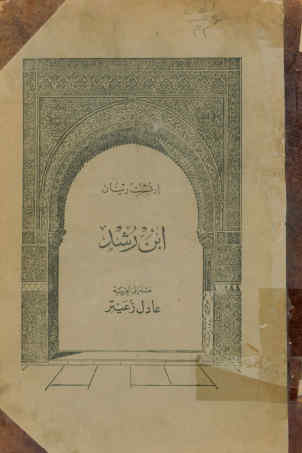 إرنست رينان
ابن رُشْد
نقله إلى العربية
عادل زعيتر